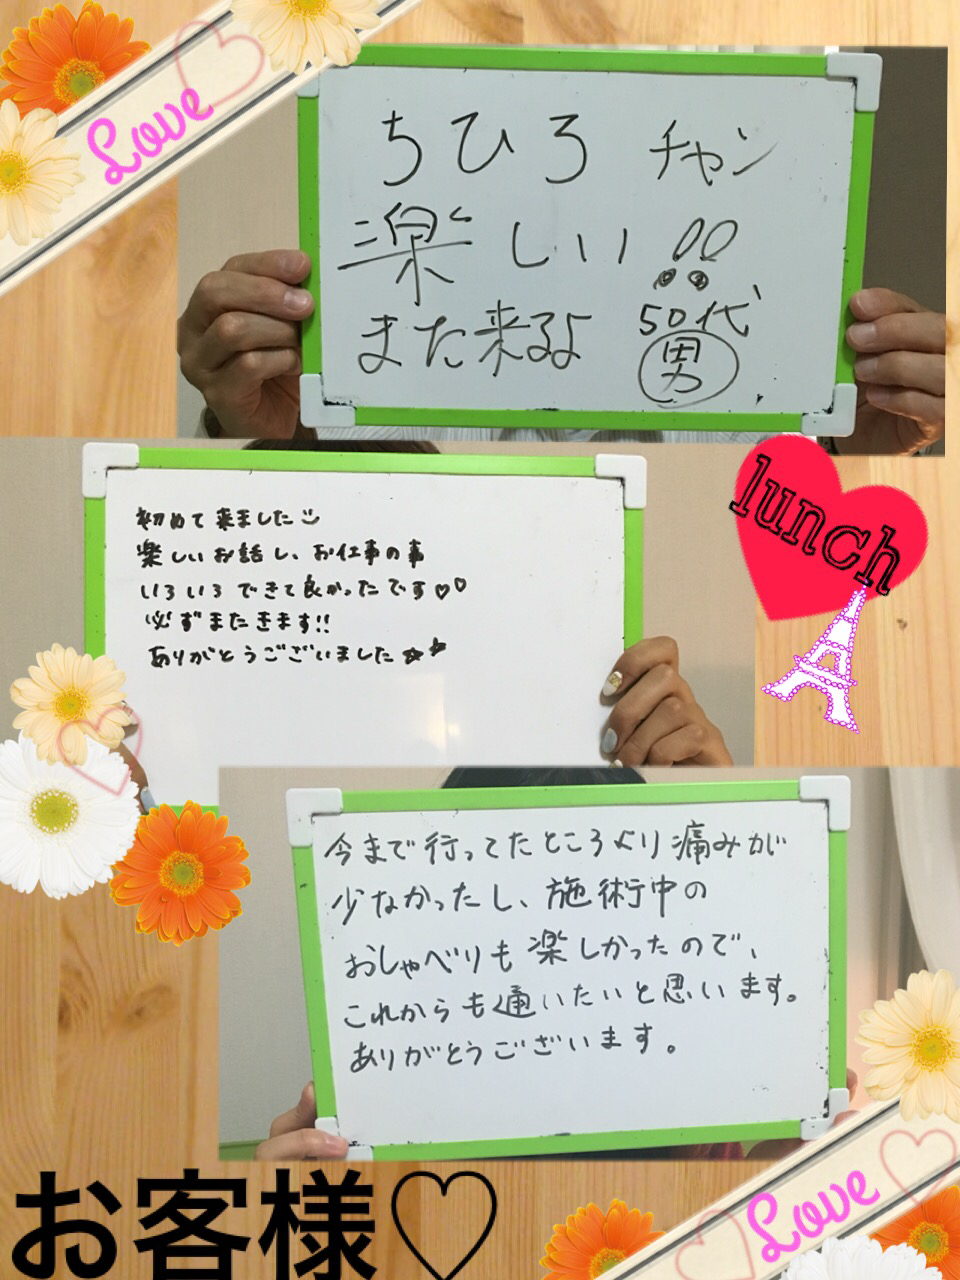 Love
ちひろ チャン
楽しい!!
また来るよ 50代
男
lunch
初めて来ました
楽しいお話し、お仕事の事
いろいろできて良かったです♡♡
必ずまたきます!!
ありがとうございました☆☆
今まで行ってたところより痛みが
少なかったし、施術中の
おしゃべりも楽しかったので、
これからも通いたいと思います。
ありがとうございます。
お客様♡
Love